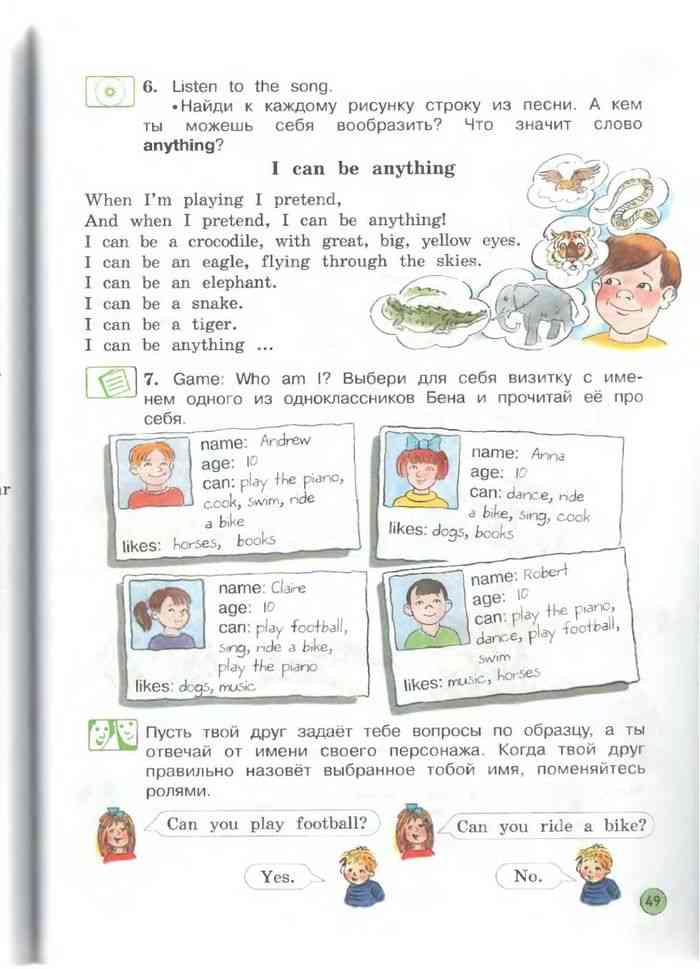 6. Listen to the song.
•Найди к каждому рисунку строку из песни. А кем
ты можешь себя вообразить? Что значит слово
anything?
I can be anything
When I'm playing I pretend,
And when I pretend, I can be anything!
I can be a crocodile, with great, big, yellow eyes.
I can be an eagle, flying through the skies.
I can be an elephant.
I can be a snake.
I can be a tiger.
I can be anything ...
7. Game: Who am I? Выбери для себя визитку с име-
нем одного из одноклассников Бена и прочитай её про
себя.
name: Andrew
age: 10
can: play the piano,
cook, swim, ride
a bike
likes: horses, books
name: Anna
age: 10
can: dance, ride
a bike, sing, cook
likes: dogs, books
name: Claire
age: 10
can: play football,
sing, ride a bike,
play the piano
likes: dogs, music
name: Robert
age: 10
can: play the piano,
dance, play football,
swim
likes: music, horses
Пусть твой друг задаёт тебе вопросы по образцу, а ты
отвечай от имени своего персонажа. Когда твой друг
правильно назовёт выбранное тобой имя, поменяйтесь
ролями.
Can you play football?
Can you ride a bike?
Yes.
No.
49